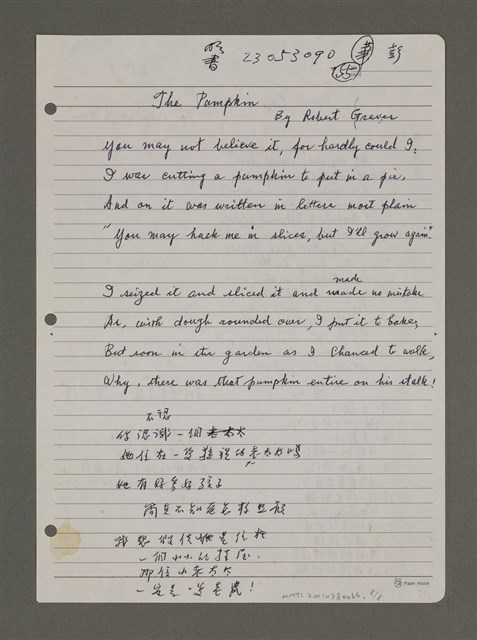 23053090 彭
55
The Pumpkin
By Robert Graves
You may not believe it, for hardly could I:
I was cutting a pumpkin to put in a pie,
And on it was written in letters most plain
"You may hack me in slices, but I'll grow again."
I seized it and sliced it and made made no mistake
As, with dough rounded over, I put it to bake;
But soon in the garden as I chanced to walk,
Why, there was that pumpkin entire on his stalk!
不認
你認識一個老太太
她住在一隻鞋裡的老太太嗎
她有好多好孩子
簡直不知
我想假使她是
一個小小的
那位小老太太
一定是一隻老鼠!
Paper House